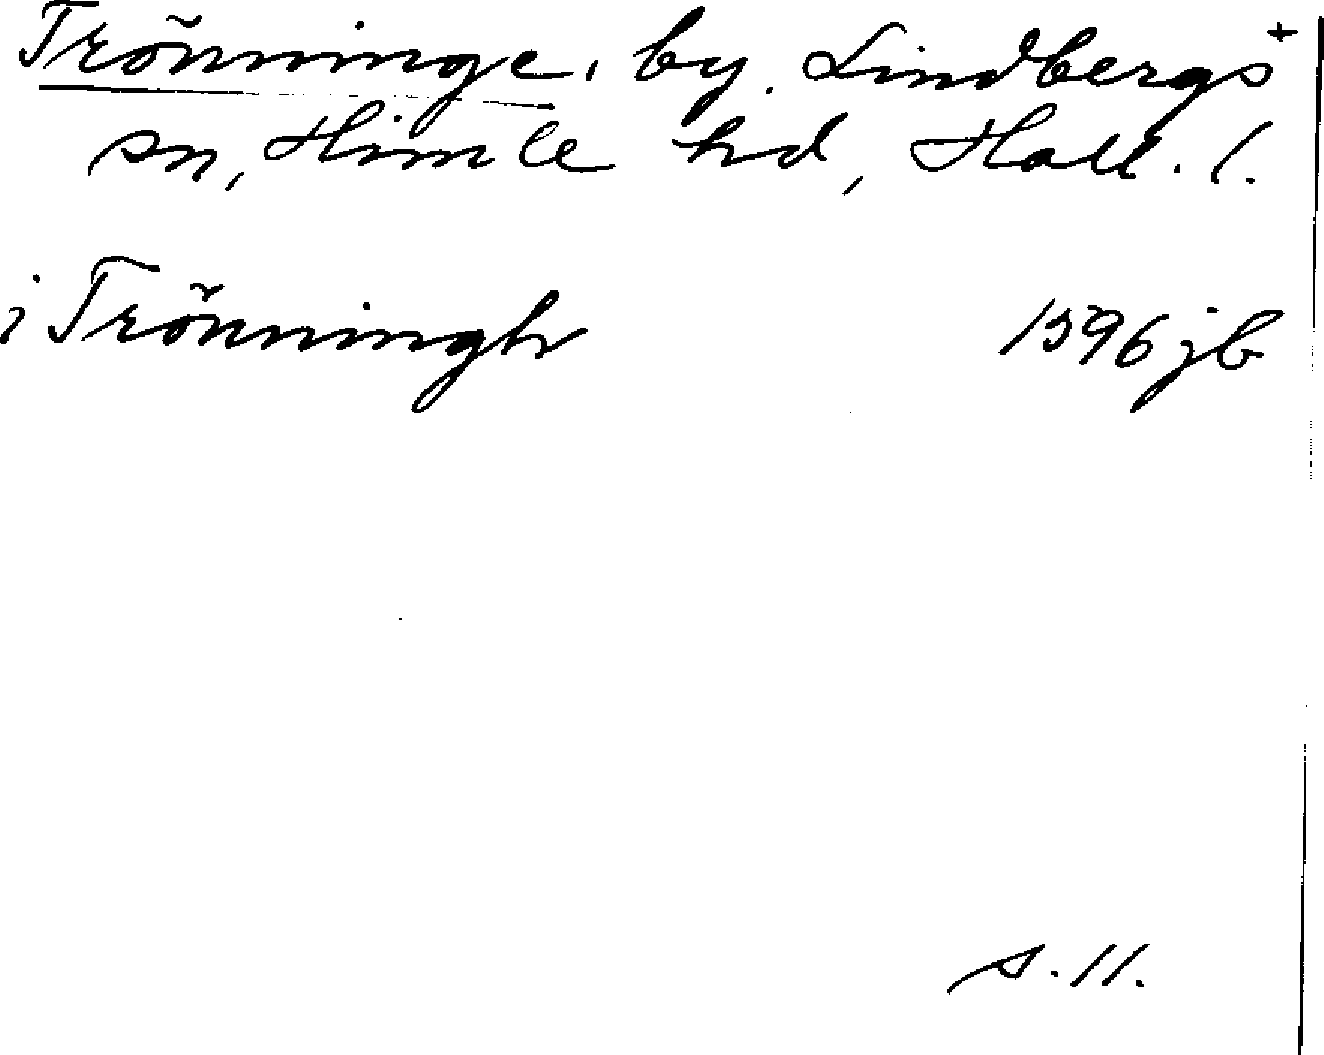 Trönninge, by. Lindbergs +
sn, Himle hd, Hall. l.
i Trönningh 1596 jb
s. 11.